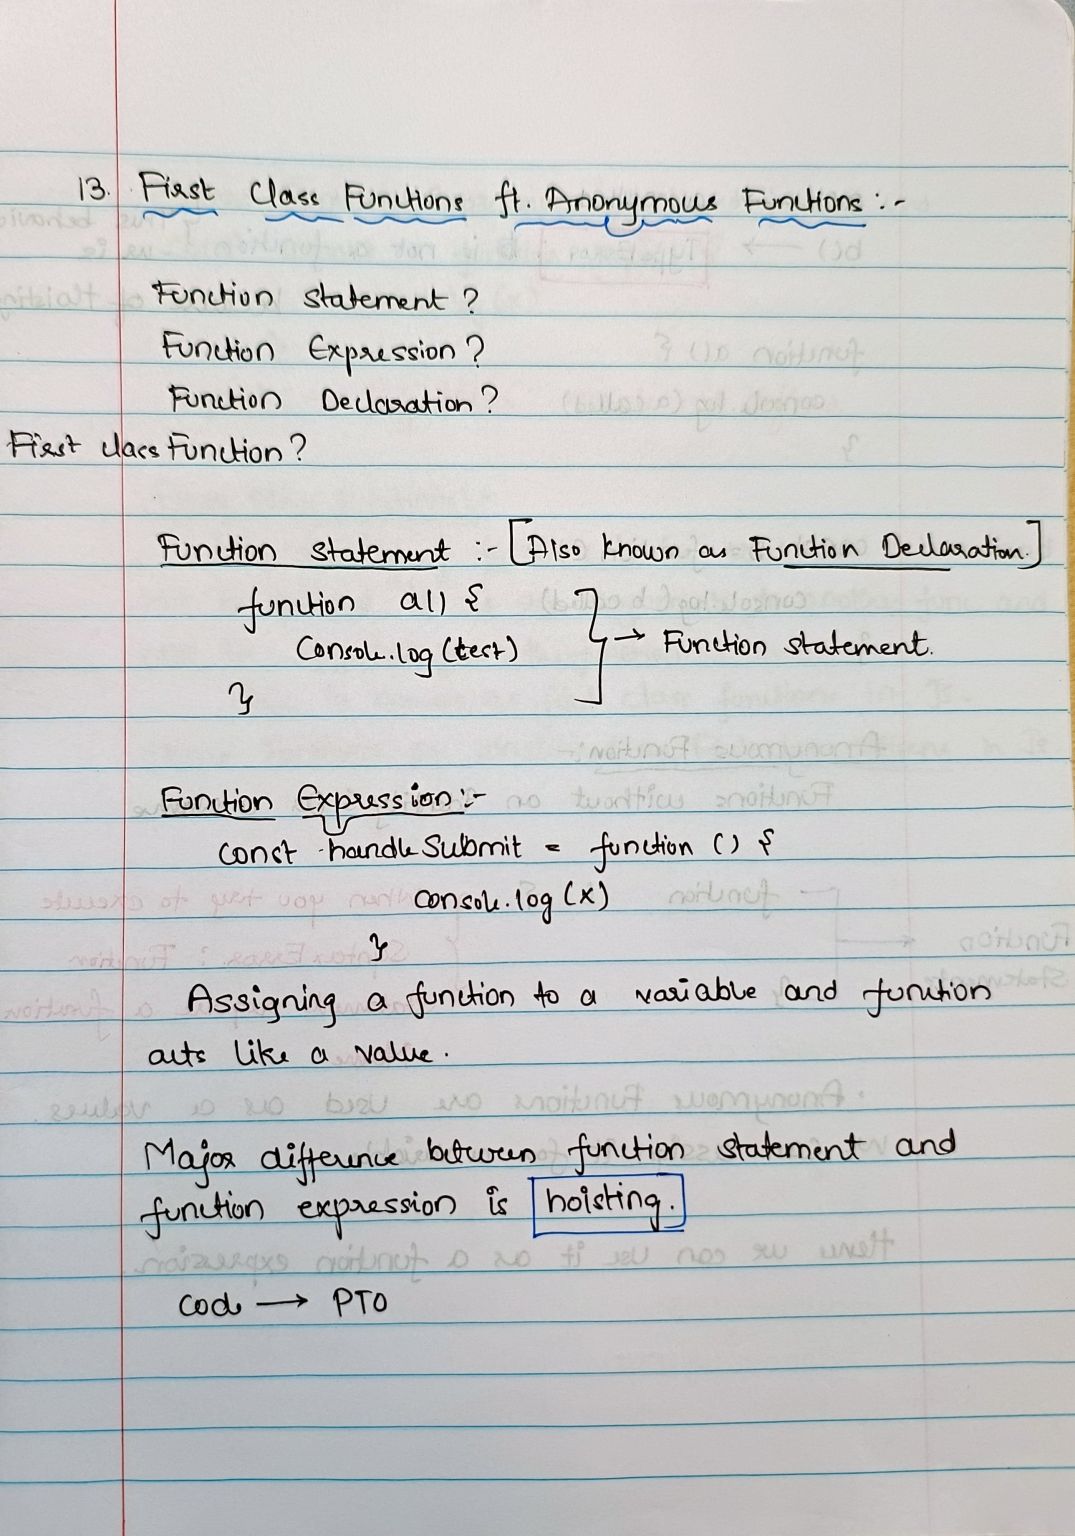 13. First Class Functions ft. Anonymous Functions :-
Function statement ?
Function Expression ?
Function Declaration ?
First class Function ?
Function statement :- [Also known as Function Declaration.]
function a() {
Console.log (test)
} → Function statement.
Function Expression :-
const handleSubmit = function () {
console.log (x)
}
Assigning a function to a variable and function
acts like a value.
Major difference between function statement and
function expression is hoisting.
code → PTO